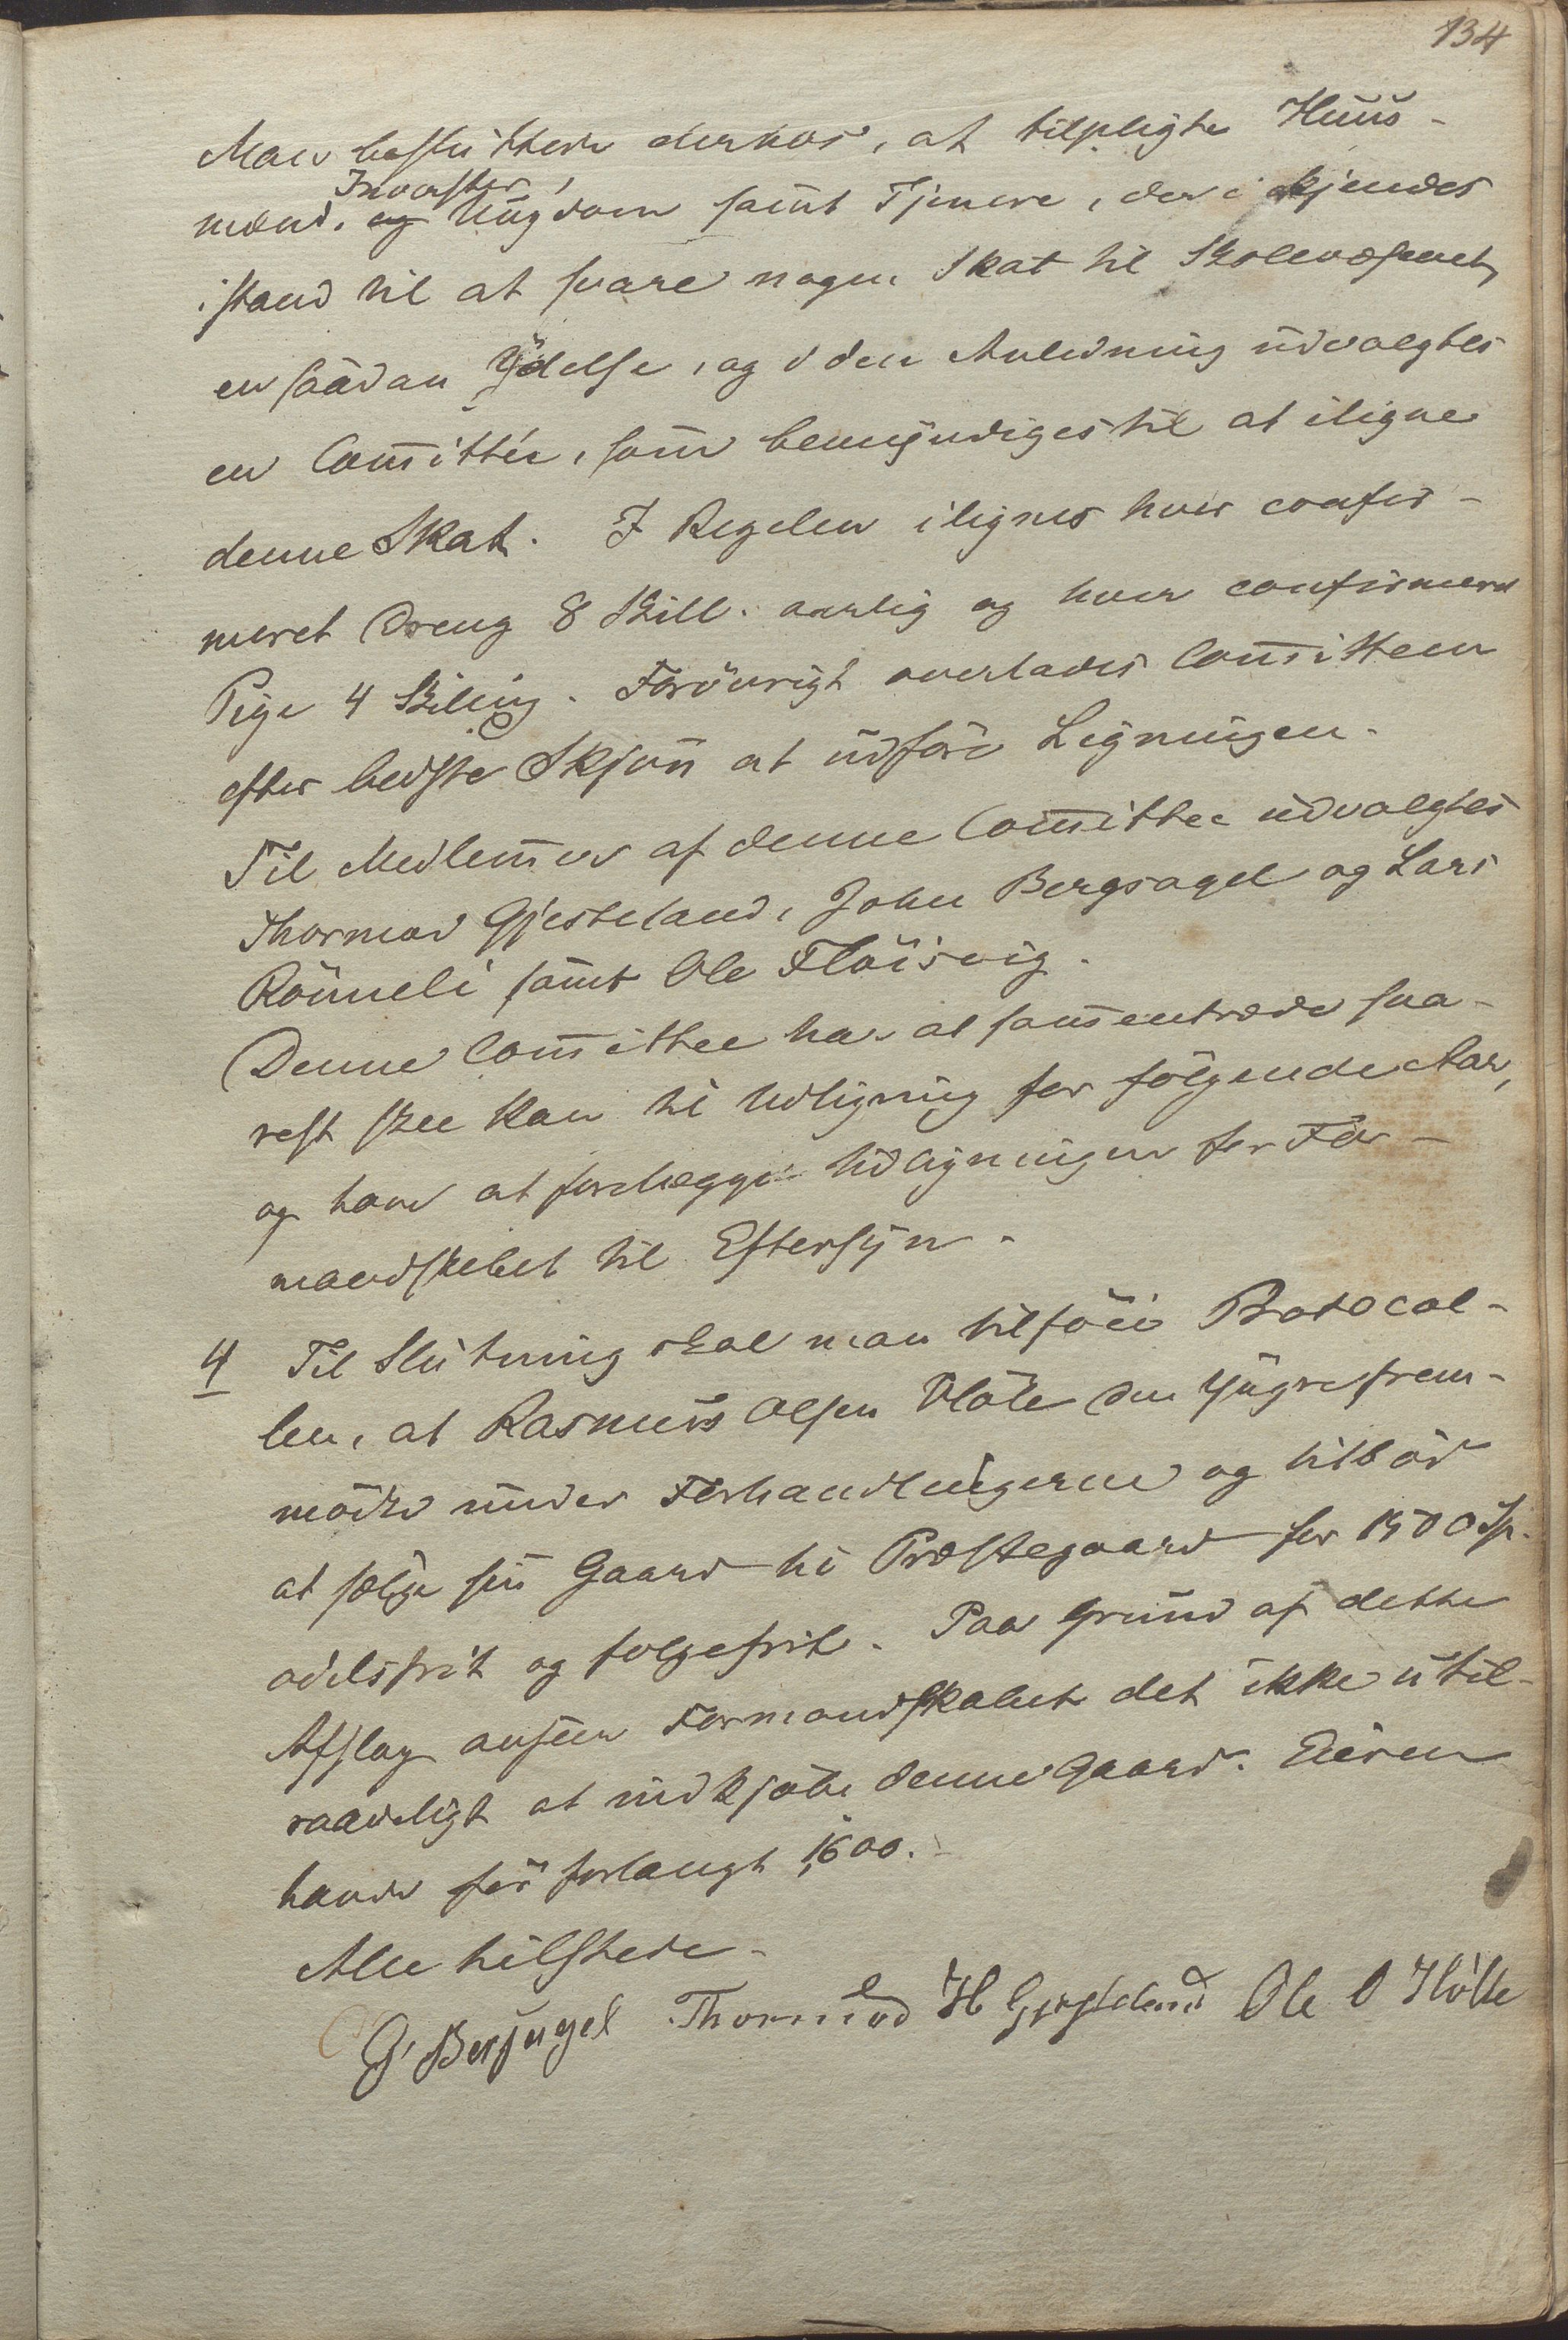 134
Man besluttede derhos, at tilpligte Huus-
Inderster,
mænd, og Ungdom samt Tjenere, der i kjendes
istand til at svare nogen Skat til Skolevæsenet,
en saadan Ydelse, og i den Anledning udvalgtes
en Committée, som bemyndiges til at iligne
denne Skat. I Regelen ilignes hver confir-
meret Dreng 8 Skill. aarlig og hver confirmeret
Pige 4 Skilling. Forövrigt overlades Committeen
efter bedste Skjön at udföre Ligningen.
Til Medlemmer af denne Committee udvalgtes
Thormod Gjesteland, John Bergsagel og Lars
Rönneli samt Ole Flöisvig.
Denne Committee har at sammentræde sna-
rest skee kan til Udligning for fölgende Aar,
og have at forelægge Udligningen for For-
mandskabet til Eftersyn.
4 Til Slutning skal man tilföie Protocol-
len, at Rasmus Olsen Vlöte den Yngre frem-
mödte under Forhandlingerne og tilböd
at sælge sin Gaard til Præstegaard for 1500 Sp.
odelsfrit og folgefrit. Paa Grund af dette
Afslag anseer Formandskabet det ikke util-
raadeligt at indkjöbe denne Gaard. Eieren
havde för forlangt 1600.
Alle tilstede.
G. Bersagel Thormod H Gjesteland Ole O Hölte